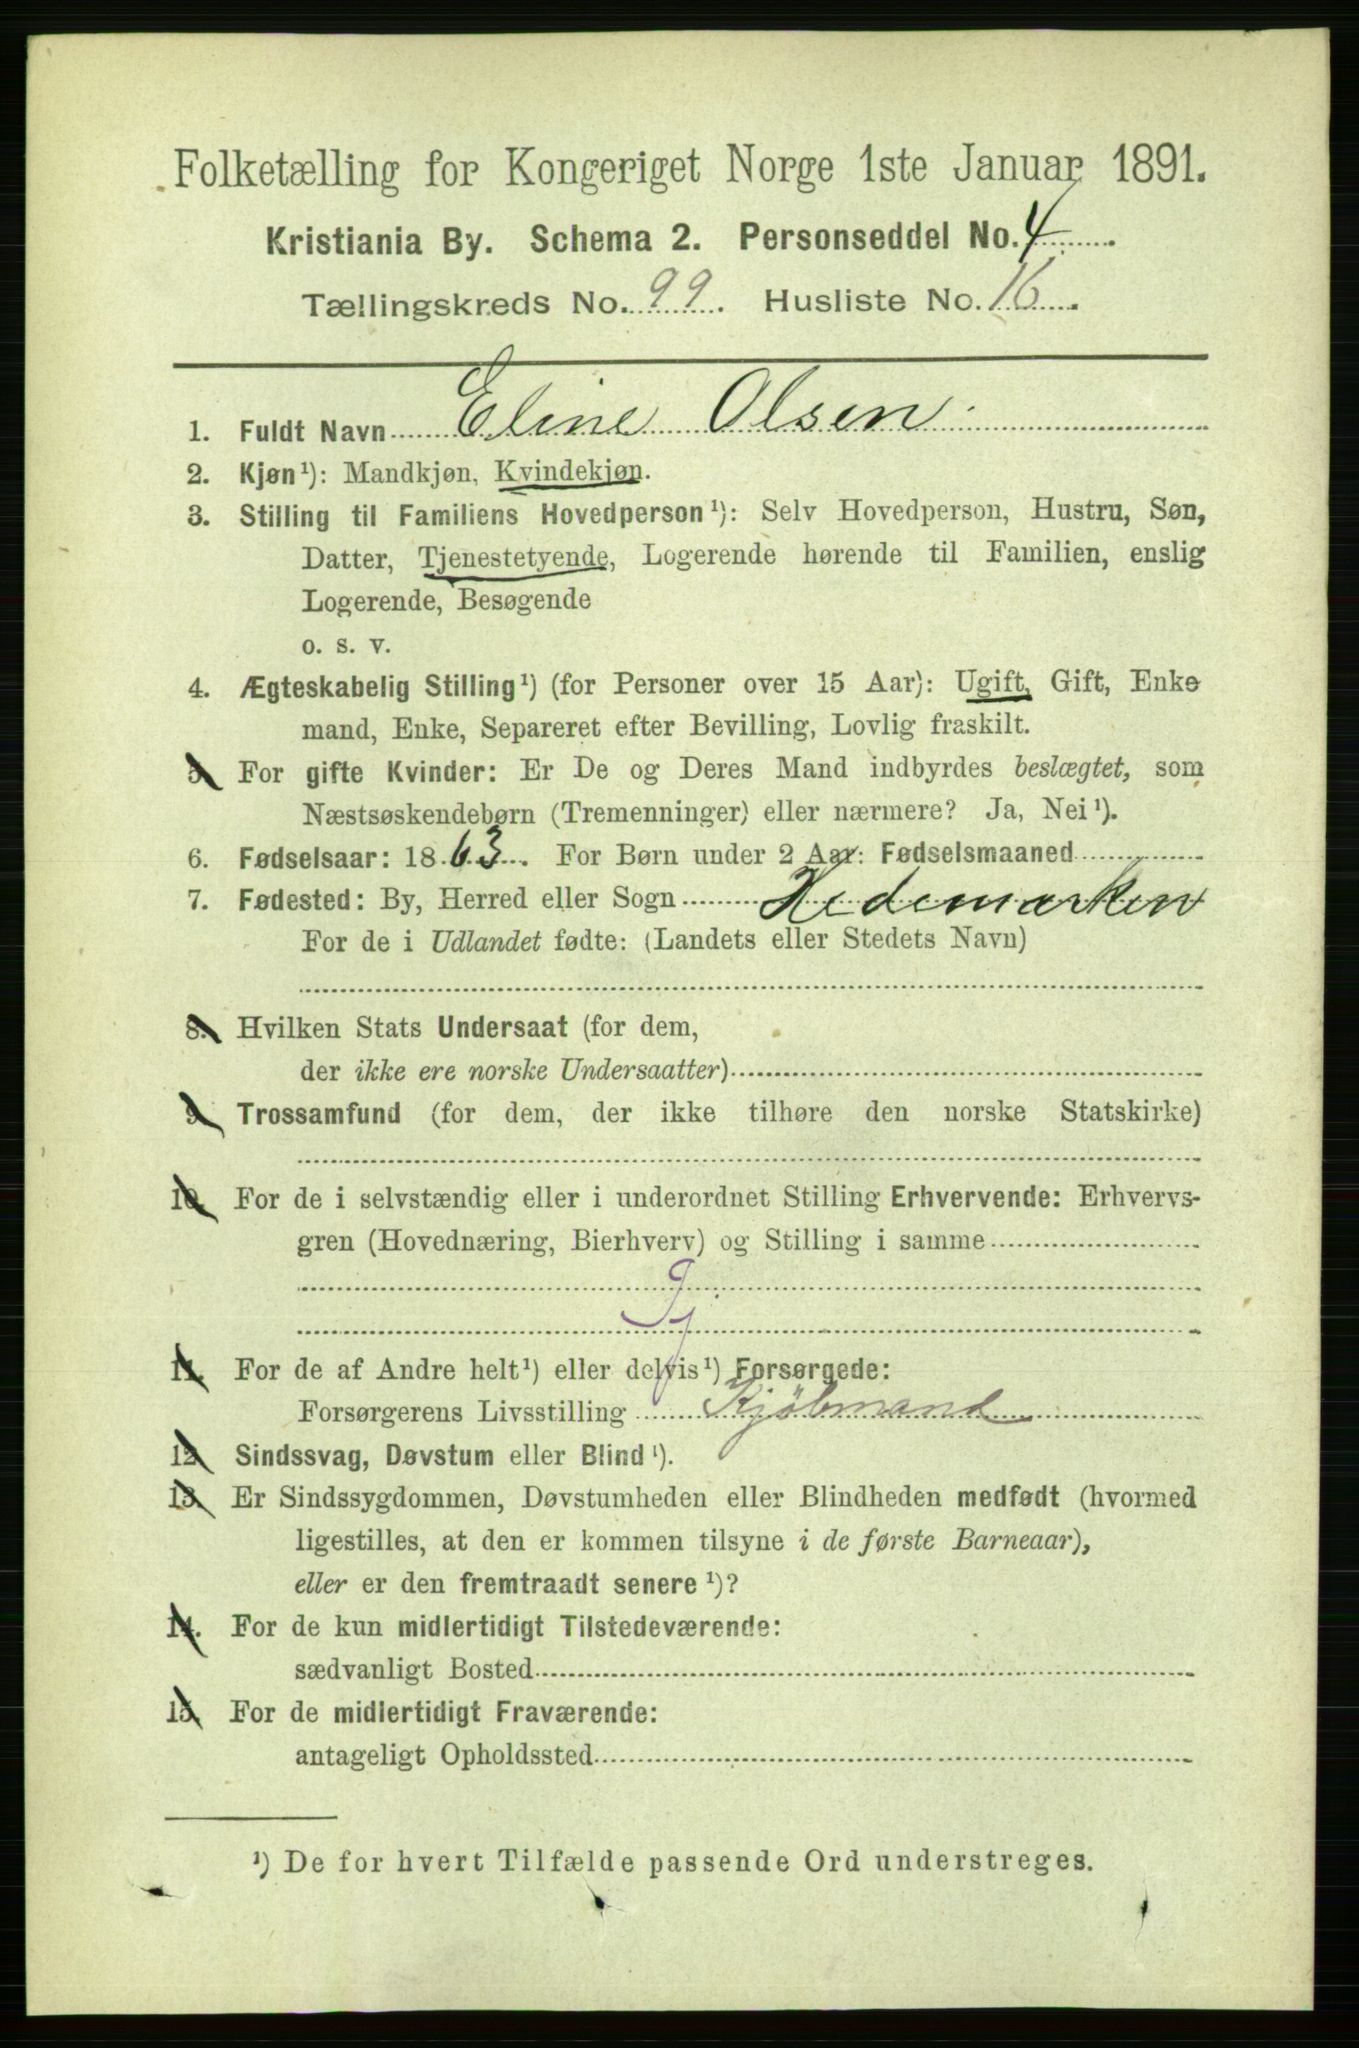 Folketælling for Kongeriget Norge 1ste Januar 1891.
Kristiania By. Schema 2. Personseddel No. 4
Tællingskreds No. 99. Husliste No. 16.
1. Fuldt Navn Eline Olsen.
2. Kjøn¹): Mandkjøn, Kvindekjøn.
3. Stilling til Familiens Hovedperson¹): Selv Hovedperson, Hustru, Søn,
Datter, Tjenestetyende, Logerende hørende til Familien, enslig
Logerende, Besøgende
o. s. v.
4. Ægteskabelig Stilling¹) (for Personer over 15 Aar): Ugift, Gift, Enke
mand, Enke, Separeret efter Bevilling, Lovlig fraskilt.
5. For gifte Kvinder: Er De og Deres Mand indbyrdes beslægtet, som
Næstsøskendebørn (Tremenninger) eller nærmere? Ja, Nei¹).
6. Fødselsaar: 1863. For Børn under 2 Aar: Fødselsmaaned
7. Fødested: By, Herred eller Sogn Hedemarken
For de i Udlandet fødte: (Landets eller Stedets Navn)
8. Hvilken Stats Undersaat (for dem,
der ikke ere norske Undersaatter)
9. Trossamfund (for dem, der ikke tilhøre den norske Statskirke)
10. For de i selvstændig eller i underordnet Stilling Erhvervende: Erhvervs-
gren (Hovednæring, Bierhverv) og Stilling i samme
Tj
11. For de af Andre helt¹) eller delvis¹) Forsørgede:
Forsørgerens Livsstilling Kjöbmand
12. Sindssvag, Døvstum eller Blind¹).
13. Er Sindssygdommen, Døvstumheden eller Blindheden medfødt (hvormed
ligestilles, at den er kommen tilsyne i de første Barneaar),
eller er den fremtraadt senere¹)?
14. For de kun midlertidigt Tilstedeværende:
sædvanligt Bosted
15. For de midlertidigt Fraværende:
antageligt Opholdssted
¹) De for hvert Tilfælde passende Ord understreges.